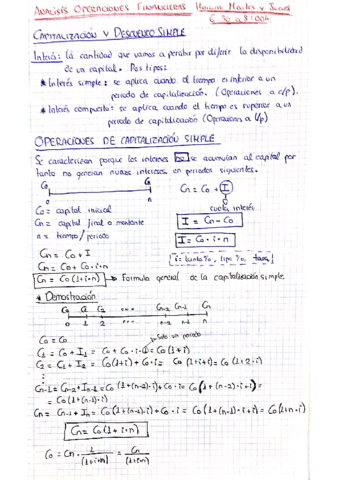 ANALISIS OPERACIONES FINANCIERAS
CAPITALIZACIÓN Y DESCUENTO SIMPLE
Interés: la cantidad que vamos a percibir por diferir la disponibilidad
de un capital. Dos tipos:
* Interés simple: se aplica cuando el tiempo es inferior a un
periodo de capitalización. (Operaciones a c/p).
* Interés compuesto: se aplica cuando el tiempo es superior a un
periodo de capitalización (Operaciones a l/p)
OPERACIONES DE CAPITALIZACIÓN SIMPLE
Se caracterizan porque los intereses no se acumulan al capital por
tanto no generan nuevos intereses en periodos siguientes.
Co Cn
0 n
Cn = Co + I
cuota interés
Co = capital inicial
Cn = capital final o montante
n = tiempo/periodo
I = Cn - Co
I = Co · i · n
i = tanto %, tipo %, tasa
Cn = Co + I
Cn = Co + Co · i · n
Cn = Co (1 + i · n) → Formula general de la capitalización simple.
* Demostración
Co C1 C2 ... Cn-2 Cn-1 Cn
0 1 2 ... n-2 n-1 n
Co = Co
Solo un periodo
C1 = Co + I1 = Co + Co · i · 1 = Co (1 + i)
C2 = C1 + I2 = Co (1 + i) + Co · i = Co (1 + i + i) = Co (1 + 2 · i)
⋮
Cn-1 = Cn-2 + In-1 = Co (1 + (n-2) · i) + Co · i = Co (1 + (n-2) · i + i) =
= Co (1 + (n-1) · i)
Cn = Cn-1 + In = Co (1 + (n-1) · i) + Co · i = Co (1 + (n-1) · i + i) = Co (1 + n · i)
Cn = Co (1 + i · n)
Co = Cn · 1/(1 + i · n) = Cn/(1 + i · n)